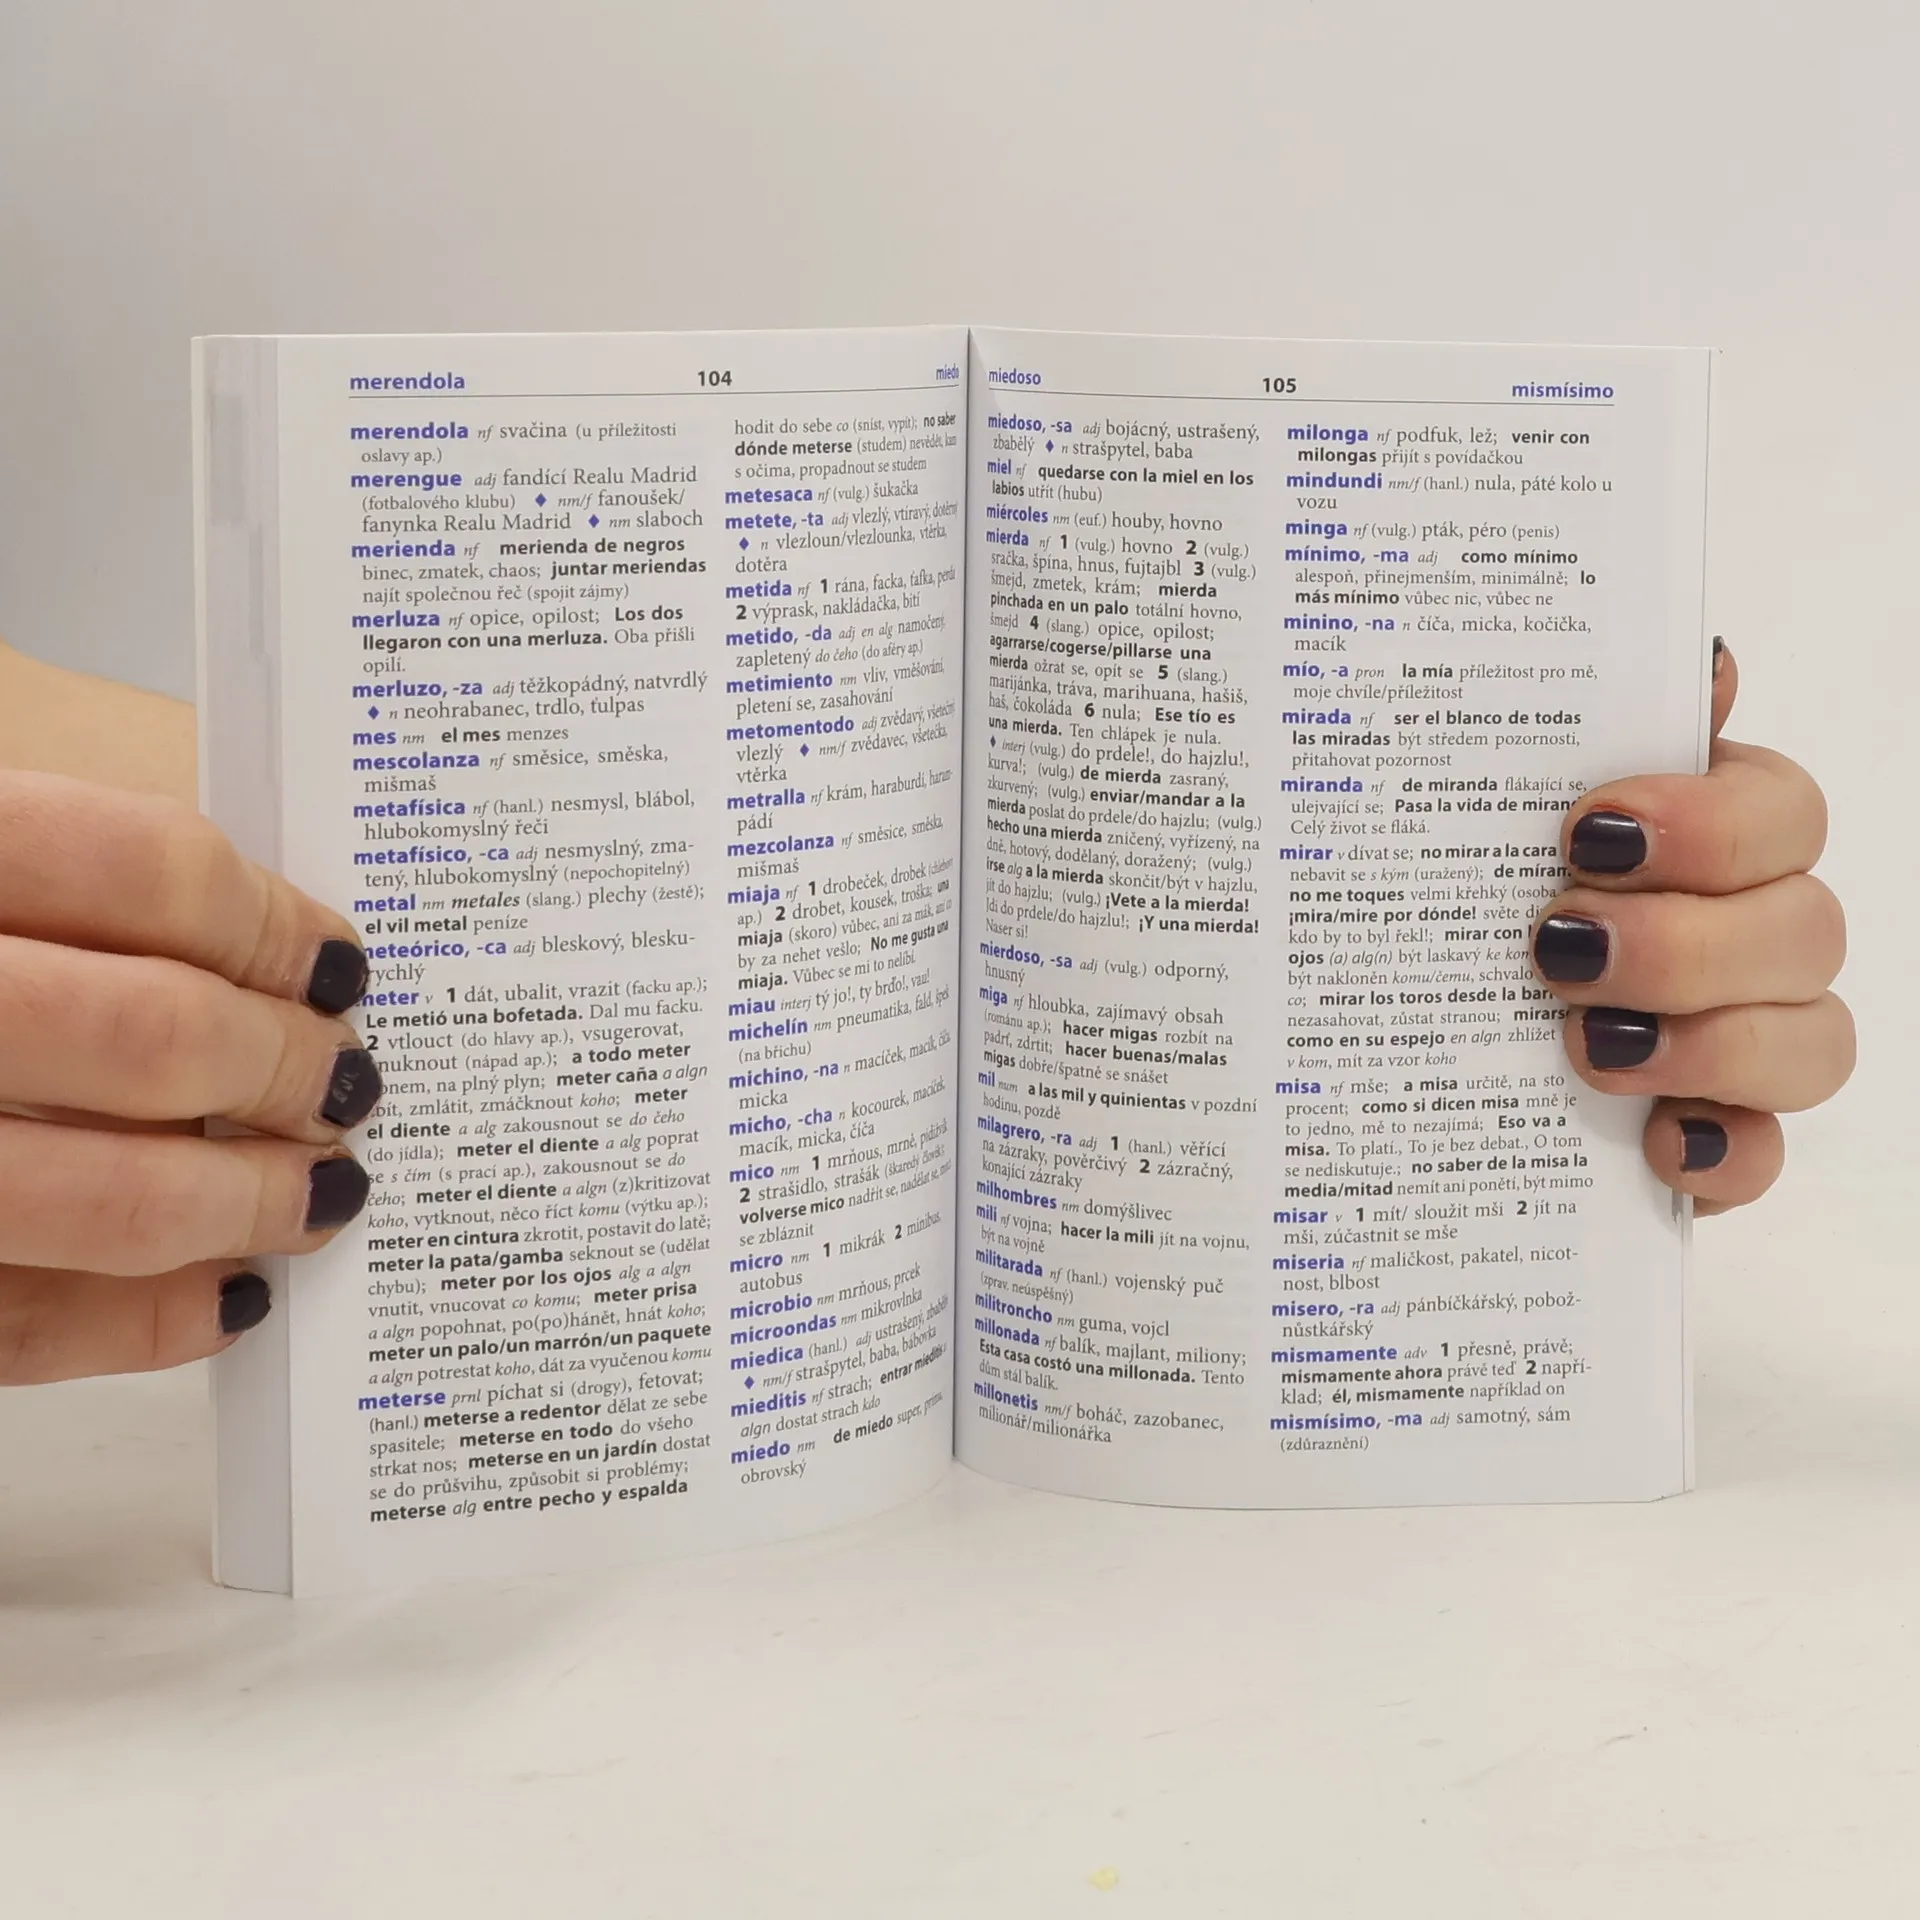 merendola 104 miedo
merendola nf svačina (u příležitosti
oslavy ap.)
merengue adj fandící Realu Madrid
(fotbalového klubu) ♦ nm/f fanoušek/
fanynka Realu Madrid ♦ nm slaboch
merienda nf merienda de negros
binec, zmatek, chaos; juntar meriendas
najít společnou řeč (spojit zájmy)
merluza nf opice, opilost; Los dos
llegaron con una merluza. Oba přišli
opilí.
merluzo, -za adj těžkopádný, natvrdlý
♦ n neohrabanec, trdlo, ťulpas
mes nm el mes menzes
mescolanza nf směsice, směska,
mišmaš
metafísica nf (hanl.) nesmysl, blábol,
hlubokomyslný řeči
metafísico, -ca adj nesmyslný, zma-
tený, hlubokomyslný (nepochopitelný)
metal nm metales (slang.) plechy (žestě);
el vil metal peníze
meteórico, -ca adj bleskový, blesku-
rychlý
meter v 1 dát, ubalit, vrazit (facku ap.);
Le metió una bofetada. Dal mu facku.
2 vtlouct (do hlavy ap.), vsugerovat,
nuknout (nápad ap.); a todo meter
na plný plyn; meter caña a algn
zmlátit, zmáčknout koho; meter
el diente a alg zakousnout se do čeho
(do jídla); meter el diente a alg poprat
se s čím (s prací ap.), zakousnout se do
čeho; meter el diente a algn (z)kritizovat
koho, vytknout, něco říct komu (výtku ap.);
meter en cintura zkrotit, postavit do latě;
meter la pata/gamba seknout se (udělat
chybu); meter por los ojos alg a algn
vnutit, vnucovat co komu; meter prisa
a algn popohnat, po(po)hánět, hnát koho;
meter un palo/un marrón/un paquete
a algn potrestat koho, dát za vyučenou komu
meterse prnl píchat si (drogy), fetovat;
(hanl.) meterse a redentor dělat ze sebe
spasitele; meterse en todo do všeho
strkat nos; meterse en un jardín dostat
se do průšvihu, způsobit si problémy;
meterse alg entre pecho y espalda
hodit do sebe co (sníst, vypít); no saber
dónde meterse (studem) nevědět, kam
s očima, propadnout se studem
metesaca nf (vulg.) šukačka
metete, -ta adj vlezlý, vtíravý, dotěrný
♦ n vlezloun/vlezlounka, vtěrka,
dotěra
metida nf 1 rána, facka, ťafka, perda
2 výprask, nakládačka, bití
metido, -da adj en alg namočený,
zapletený do čeho (do aféry ap.)
metimiento nm vliv, vměšování,
pletení se, zasahování
metomentodo adj zvědavý, všetečný,
vlezlý ♦ nm/f zvědavec, všetečka,
vtěrka
metralla nf krám, haraburdí, haram-
pádí
mezcolanza nf směsice, směska,
mišmaš
miaja nf 1 drobeček, drobek (chlebový
ap.) 2 drobet, kousek, troška; una
miaja (skoro) vůbec, ani za mák, ani co
by za nehet vešlo; No me gusta una
miaja. Vůbec se mi to nelíbí.
miau interj tý jo!, ty brďo!, vau!
michelín nm pneumatika, fald, špek
(na břichu)
michino, -na n macíček, macík, číča,
micka
micho, -cha n kocourek, macíček,
macík, micka, číča
mico nm 1 mrňous, mrně, pidižvík
2 strašidlo, strašák (škaredý člověk);
volverse mico nadřít se, nadělat se, moct
se zbláznit
micro nm 1 mikrák 2 minibus,
autobus
microbio nm mrňous, prcek
microondas nm mikrovlnka
miedica (hanl.) adj ustrašený, zbabělý
♦ nm/f strašpytel, baba, bábovka
mieditis nf strach; entrar mieditis a
algn dostat strach kdo
miedo nm de miedo super, prima,
obrovský
miedoso 105 mismísimo
miedoso, -sa adj bojácný, ustrašený,
zbabělý ♦ n strašpytel, baba
miel nf quedarse con la miel en los
labios utřít (hubu)
miércoles nm (euf.) houby, hovno
mierda nf 1 (vulg.) hovno 2 (vulg.)
sračka, špína, hnus, fujtajbl 3 (vulg.)
šmejd, zmetek, krám; mierda
pinchada en un palo totální hovno,
šmejd 4 (slang.) opice, opilost;
agarrarse/cogerse/pillarse una
mierda ožrat se, opít se 5 (slang.)
marijánka, tráva, marihuana, hašiš,
haš, čokoláda 6 nula; Ese tío es
una mierda. Ten chlápek je nula.
♦ interj (vulg.) do prdele!, do hajzlu!,
kurva!; (vulg.) de mierda zasraný,
zkurvený; (vulg.) enviar/mandar a la
mierda poslat do prdele/do hajzlu; (vulg.)
hecho una mierda zničený, vyřízený, na
dně, hotový, dodělaný, doražený; (vulg.)
irse alg a la mierda skončit/být v hajzlu,
jít do hajzlu; (vulg.) ¡Vete a la mierda!
Jdi do prdele/do hajzlu!; ¡Y una mierda!
Naser si!
mierdoso, -sa adj (vulg.) odporný,
hnusný
miga nf hloubka, zajímavý obsah
(románu ap.); hacer migas rozbít na
padrť, zdrtit; hacer buenas/malas
migas dobře/špatně se snášet
mil num a las mil y quinientas v pozdní
hodinu, pozdě
milagrero, -ra adj 1 (hanl.) věřící
na zázraky, pověrčivý 2 zázračný,
konající zázraky
milhombres nm domýšlivec
mili nf vojna; hacer la mili jít na vojnu,
být na vojně
militarada nf (hanl.) vojenský puč
(zprav. neúspěšný)
militroncho nm guma, vojcl
millonada nf balík, majlant, miliony;
Esta casa costó una millonada. Tento
dům stál balík.
millonetis nm/f boháč, zazobanec,
milionář/milionářka
milonga nf podfuk, lež; venir con
milongas přijít s povídačkou
mindundi nm/f (hanl.) nula, páté kolo u
vozu
minga nf (vulg.) pták, péro (penis)
mínimo, -ma adj como mínimo
alespoň, přinejmenším, minimálně; lo
más mínimo vůbec nic, vůbec ne
minino, -na n číča, micka, kočička,
macík
mío, -a pron la mía příležitost pro mě,
moje chvíle/příležitost
mirada nf ser el blanco de todas
las miradas být středem pozornosti,
přitahovat pozornost
miranda nf de miranda flákající se,
ulejvající se; Pasa la vida de miran
Celý život se fláká.
mirar v dívat se; no mirar a la cara
nebavit se s kým (uražený); de míram
no me toques velmi křehký (osoba
¡mira/mire por dónde! světe di
kdo by to byl řekl!; mirar con
ojos (a) alg(n) být laskavý ke kom
být nakloněn komu/čemu, schvalo
co; mirar los toros desde la barr
nezasahovat, zůstat stranou; mirars
como en su espejo en algn zhlížet
v kom, mít za vzor koho
misa nf mše; a misa určitě, na sto
procent; como si dicen misa mně je
to jedno, mě to nezajímá; Eso va a
misa. To platí., To je bez debat., O tom
se nediskutuje.; no saber de la misa la
media/mitad nemít ani ponětí, být mimo
misar v 1 mít/ sloužit mši 2 jít na
mši, zúčastnit se mše
miseria nf maličkost, pakatel, nicot-
nost, blbost
misero, -ra adj pánbíčkářský, pobož-
nůstkářský
mismamente adv 1 přesně, právě;
mismamente ahora právě teď 2 napří-
klad; él, mismamente například on
mismísimo, -ma adj samotný, sám
(zdůraznění)